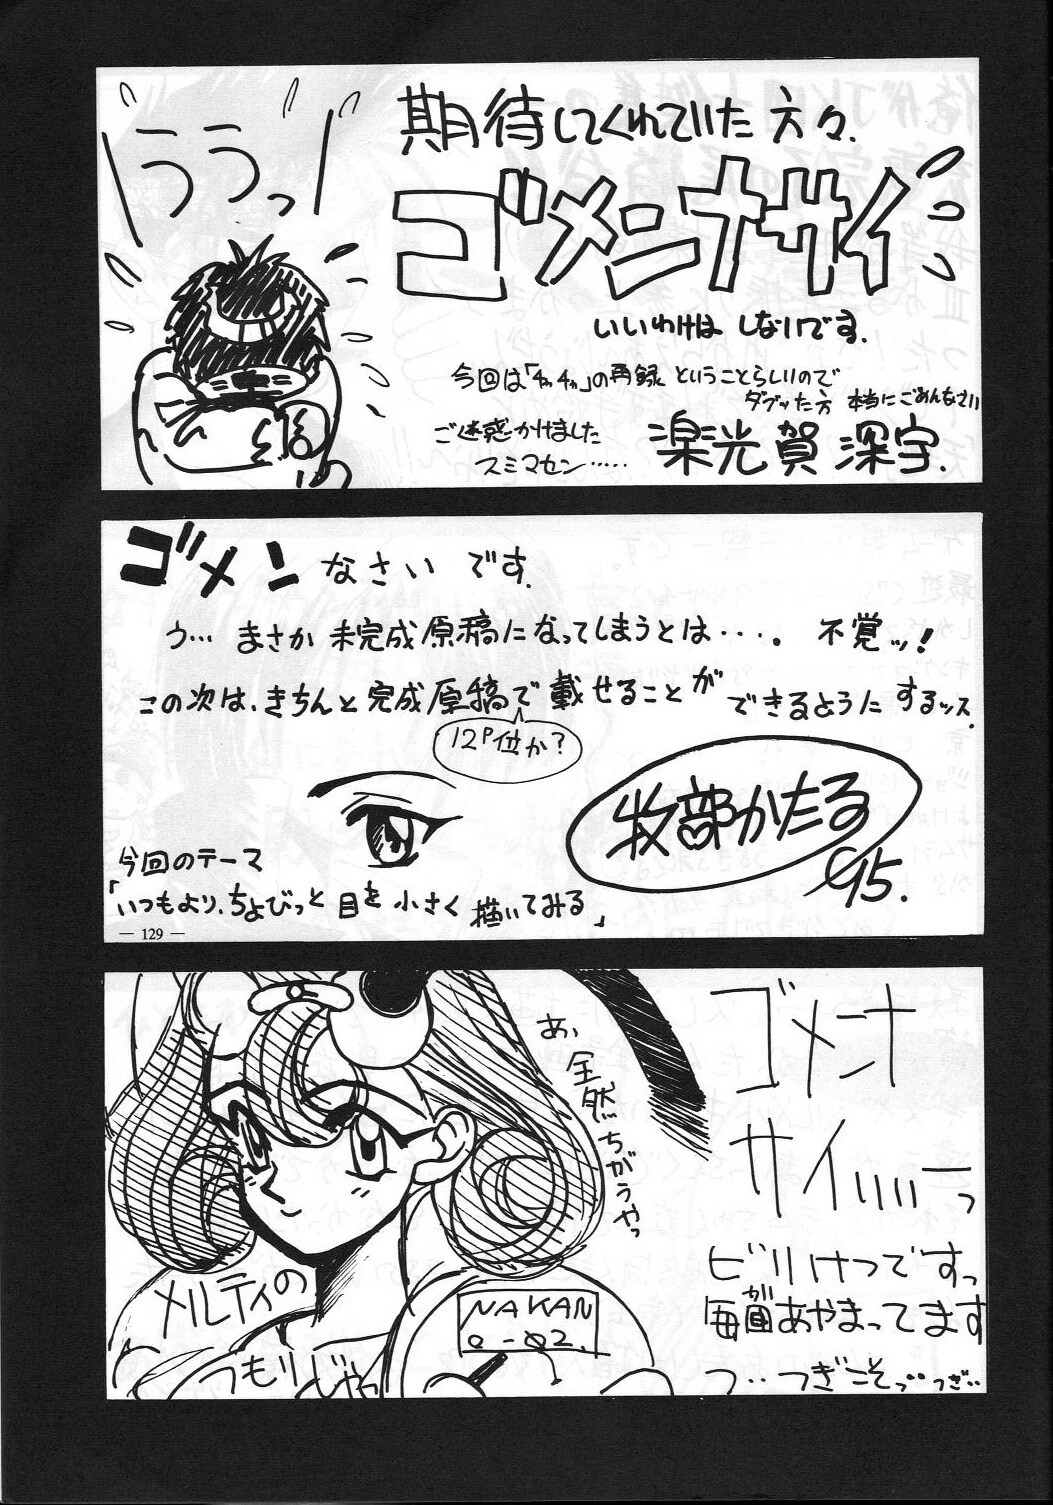 ううっ
期待してくれていた方々、
ゴメンナサイ
いいわけは しないです。
今回は「チャチャ」の再録 ということらしいので
ダブッた方 本当にごめんなさい
ご迷惑かけました
スミマセン……
楽光賀 深宇
ゴメン なさい です。
う… まさか 未完成原稿になってしまうとは・・・。 不覚ッ!
この次は、きちんと完成原稿で載せることができるようにするッス。
12P位か?
牧部かたる
'95.
今回のテーマ
「いつもより、ちょびっと 目を 小さく 描いてみる」
— 129 —
あ、全然ちがうやっ
ゴメーンナ
サイいいーっ
ビリけつですっ
毎回があやまってます
つ・・つぎこそ・・つぎ・・
メルティの
つもりじゃっ
NAKAN
0-02.